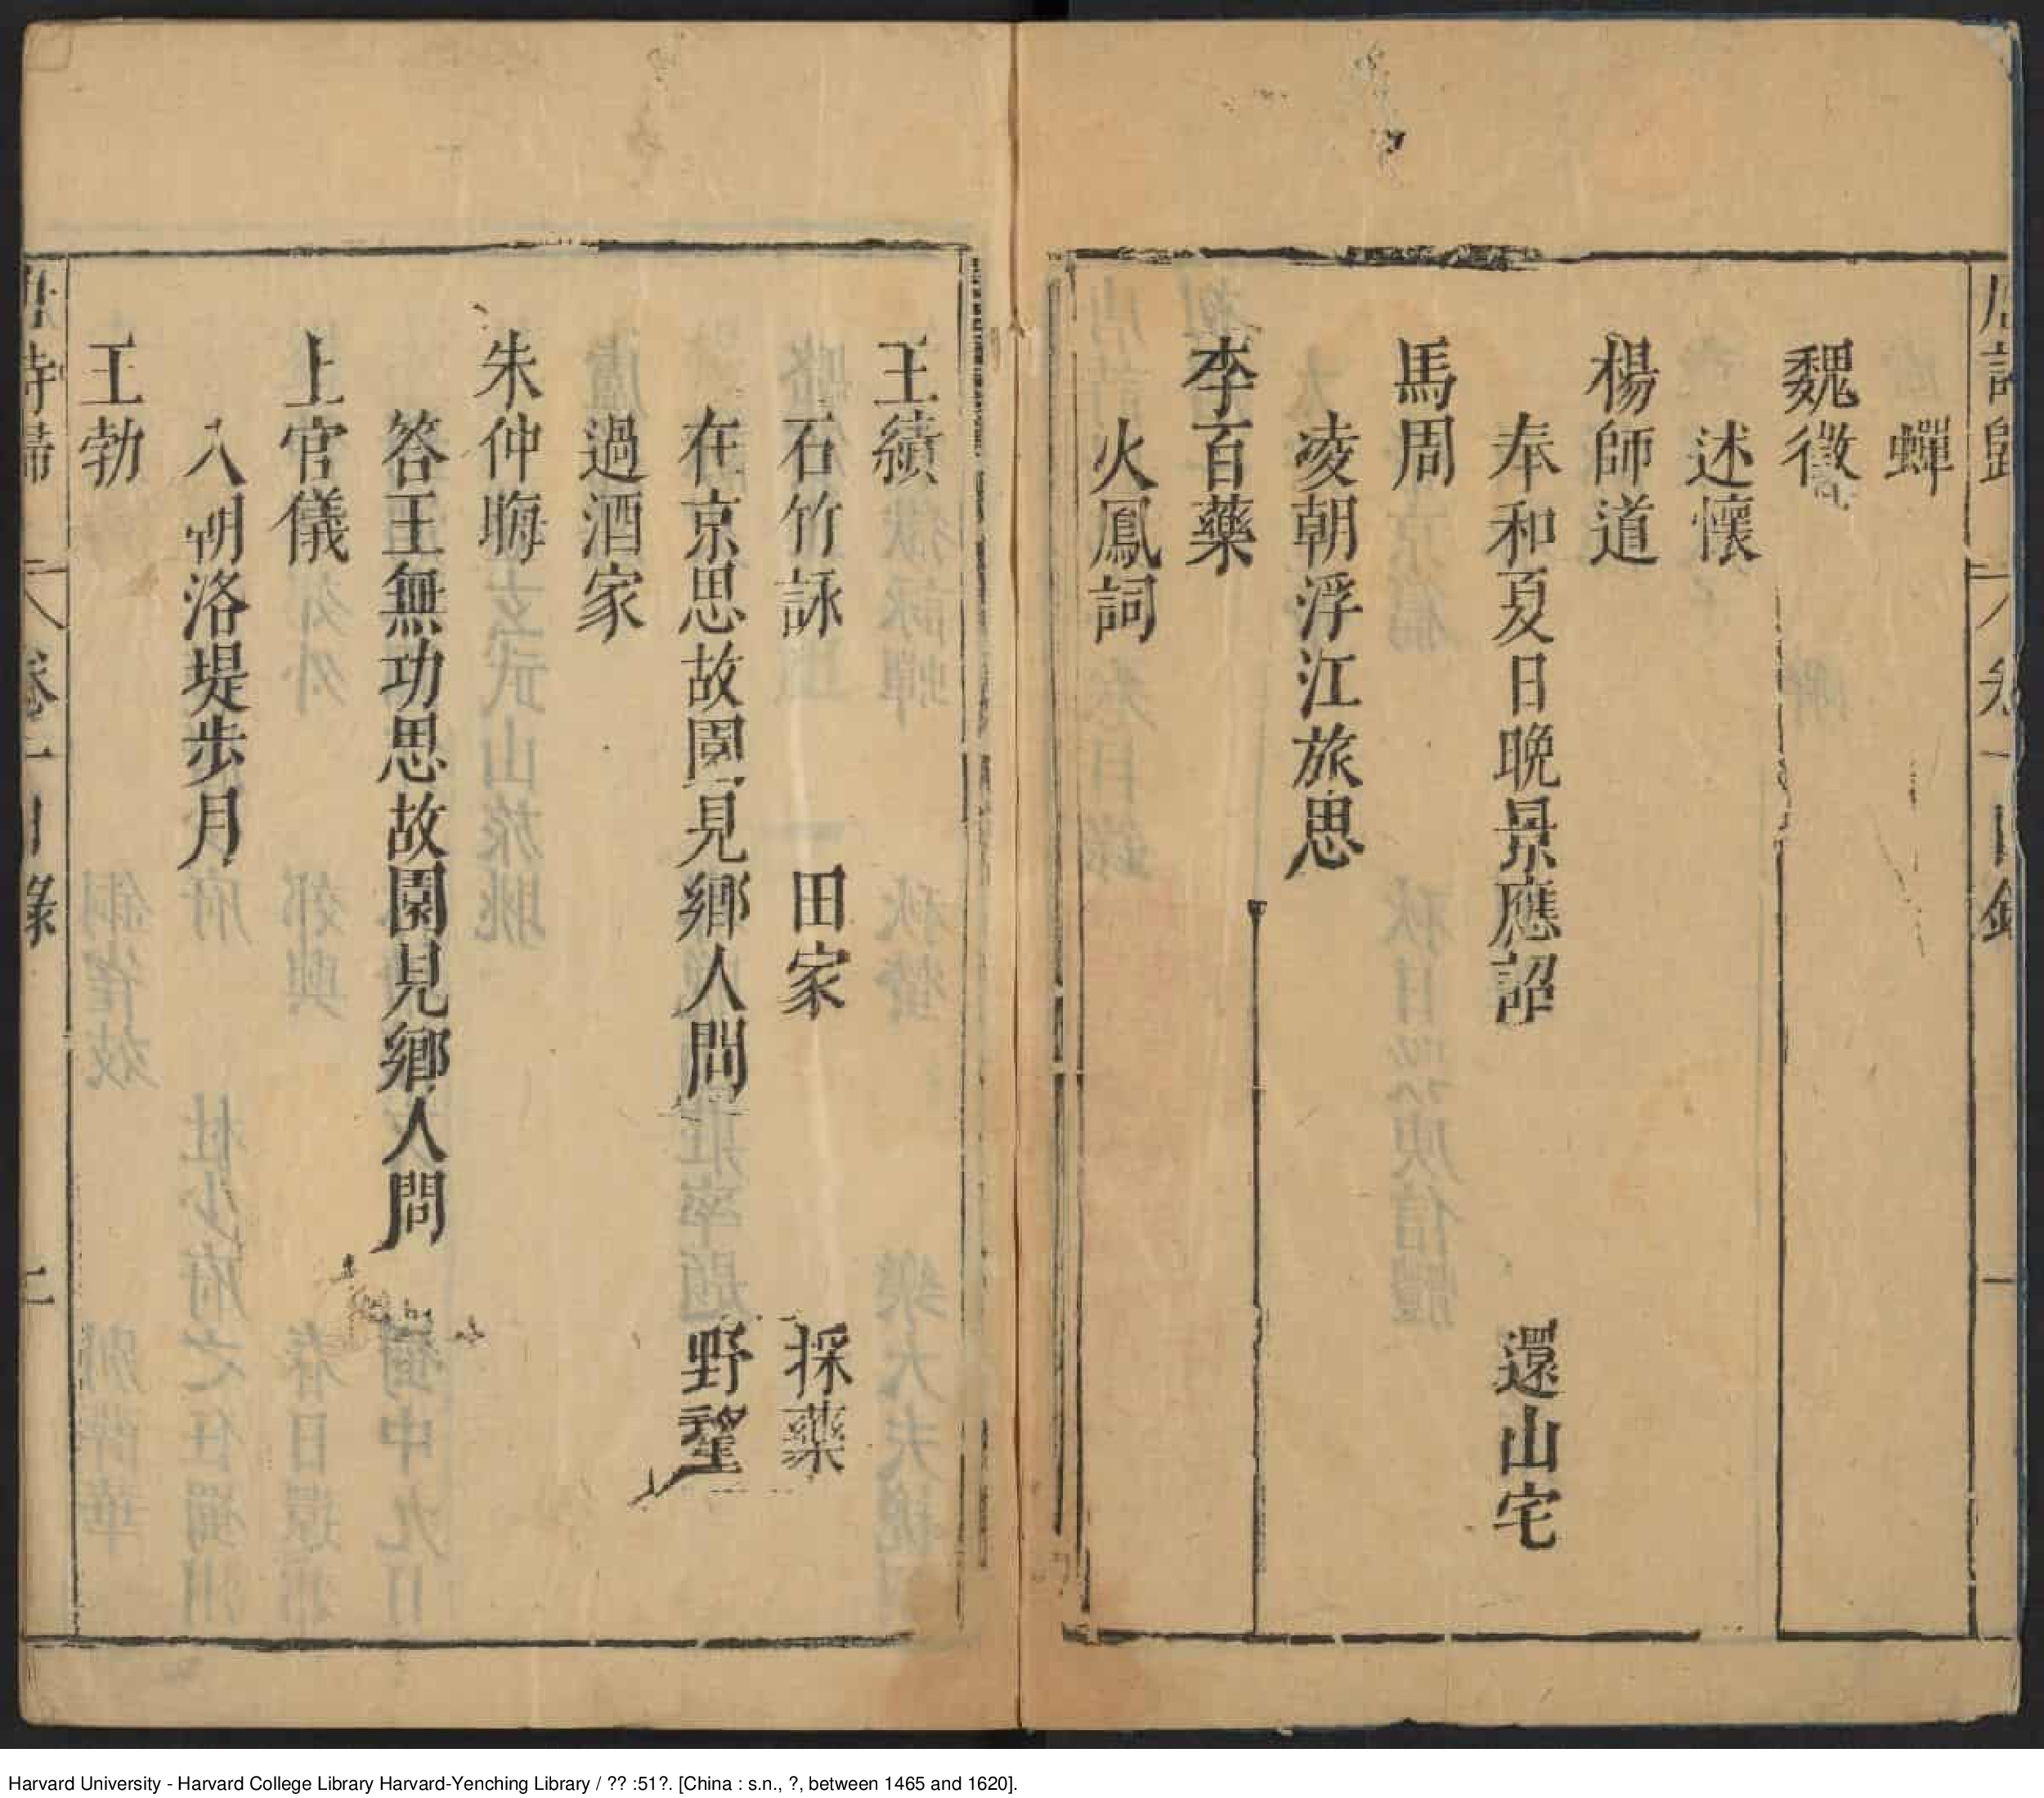 蟬
魏徵
述懷
楊師道
奉和夏日晚景應詔 還山宅
馬周
凌朝浮江旅思
李百藥
火鳳詞
王績
石竹詠 田家 採藥
在京思故園見鄉人問 野望
過酒家
朱仲晦
答王無功思故園見鄉人問
上官儀
入朝洛堤步月
王勃
Harvard University - Harvard College Library Harvard-Yenching Library / ?? :51?. [China : s.n., ?, between 1465 and 1620].